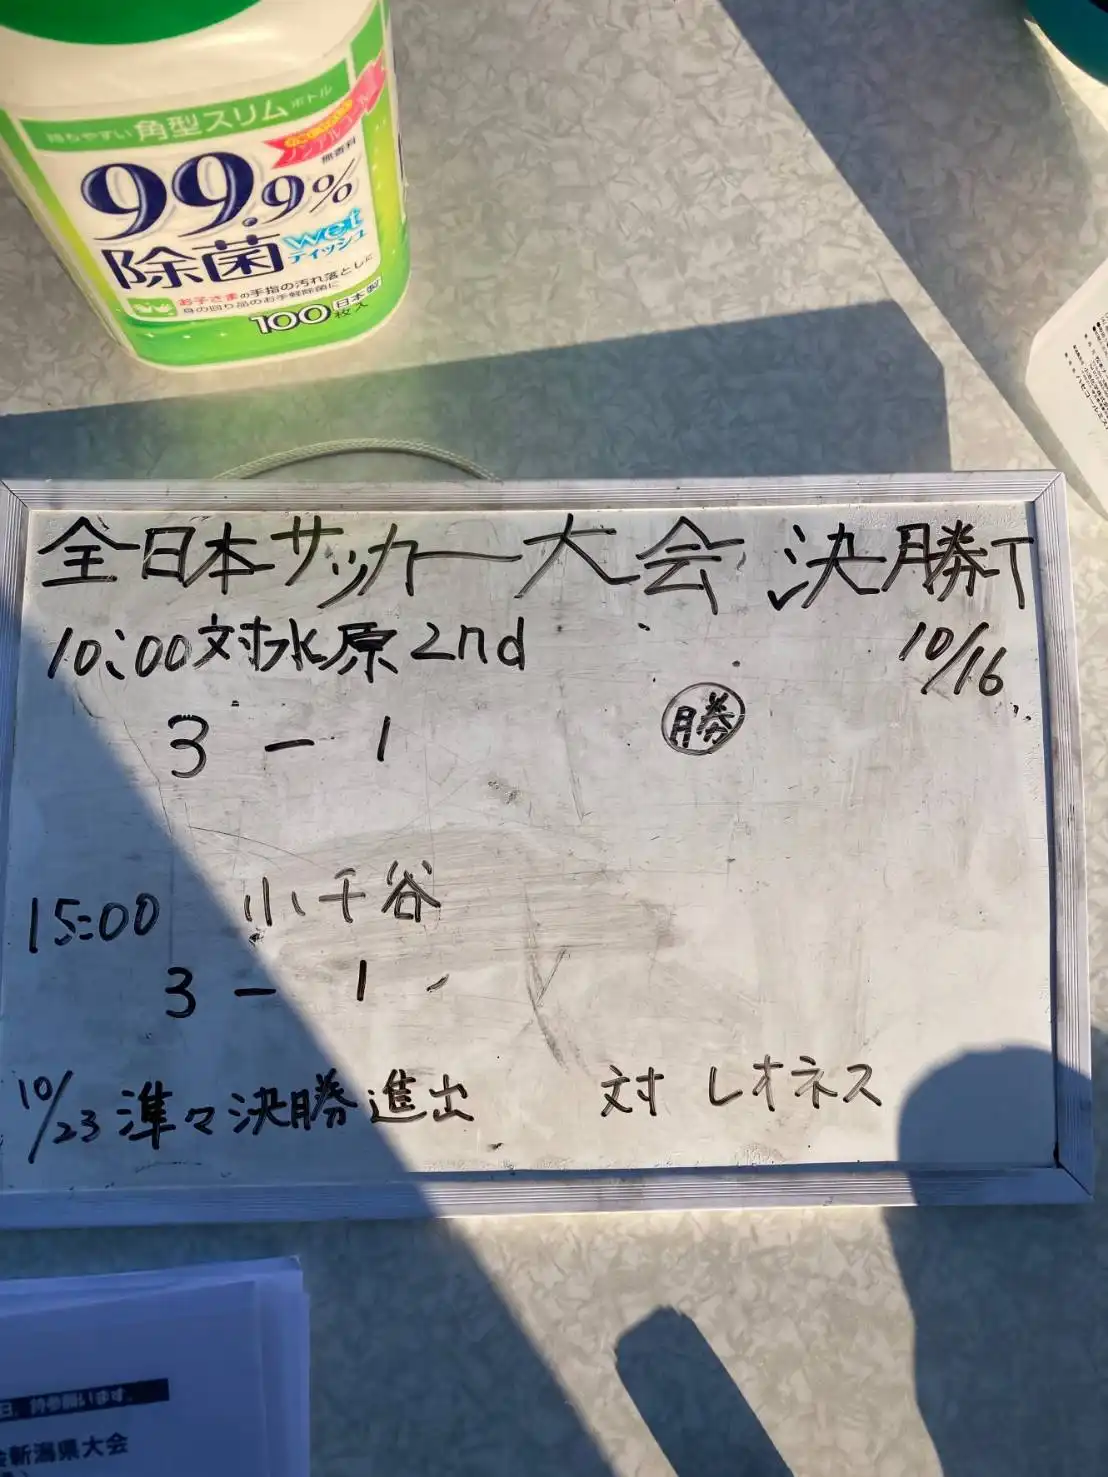 持ちやすい 角型スリムボトル
ノンアルコール
無香料
99.9%
除菌 wet
ティッシュ
お子さまの手指の汚れ落としに
身の回り品のお手軽除菌に
100枚入
日本製
全日本サッカー大会 決勝T
10:00 対水原2nd 10/16
3 - 1 勝
15:00 小千谷
3 - 1
10/23 準々決勝進出 対 レオネス
新潟県大会